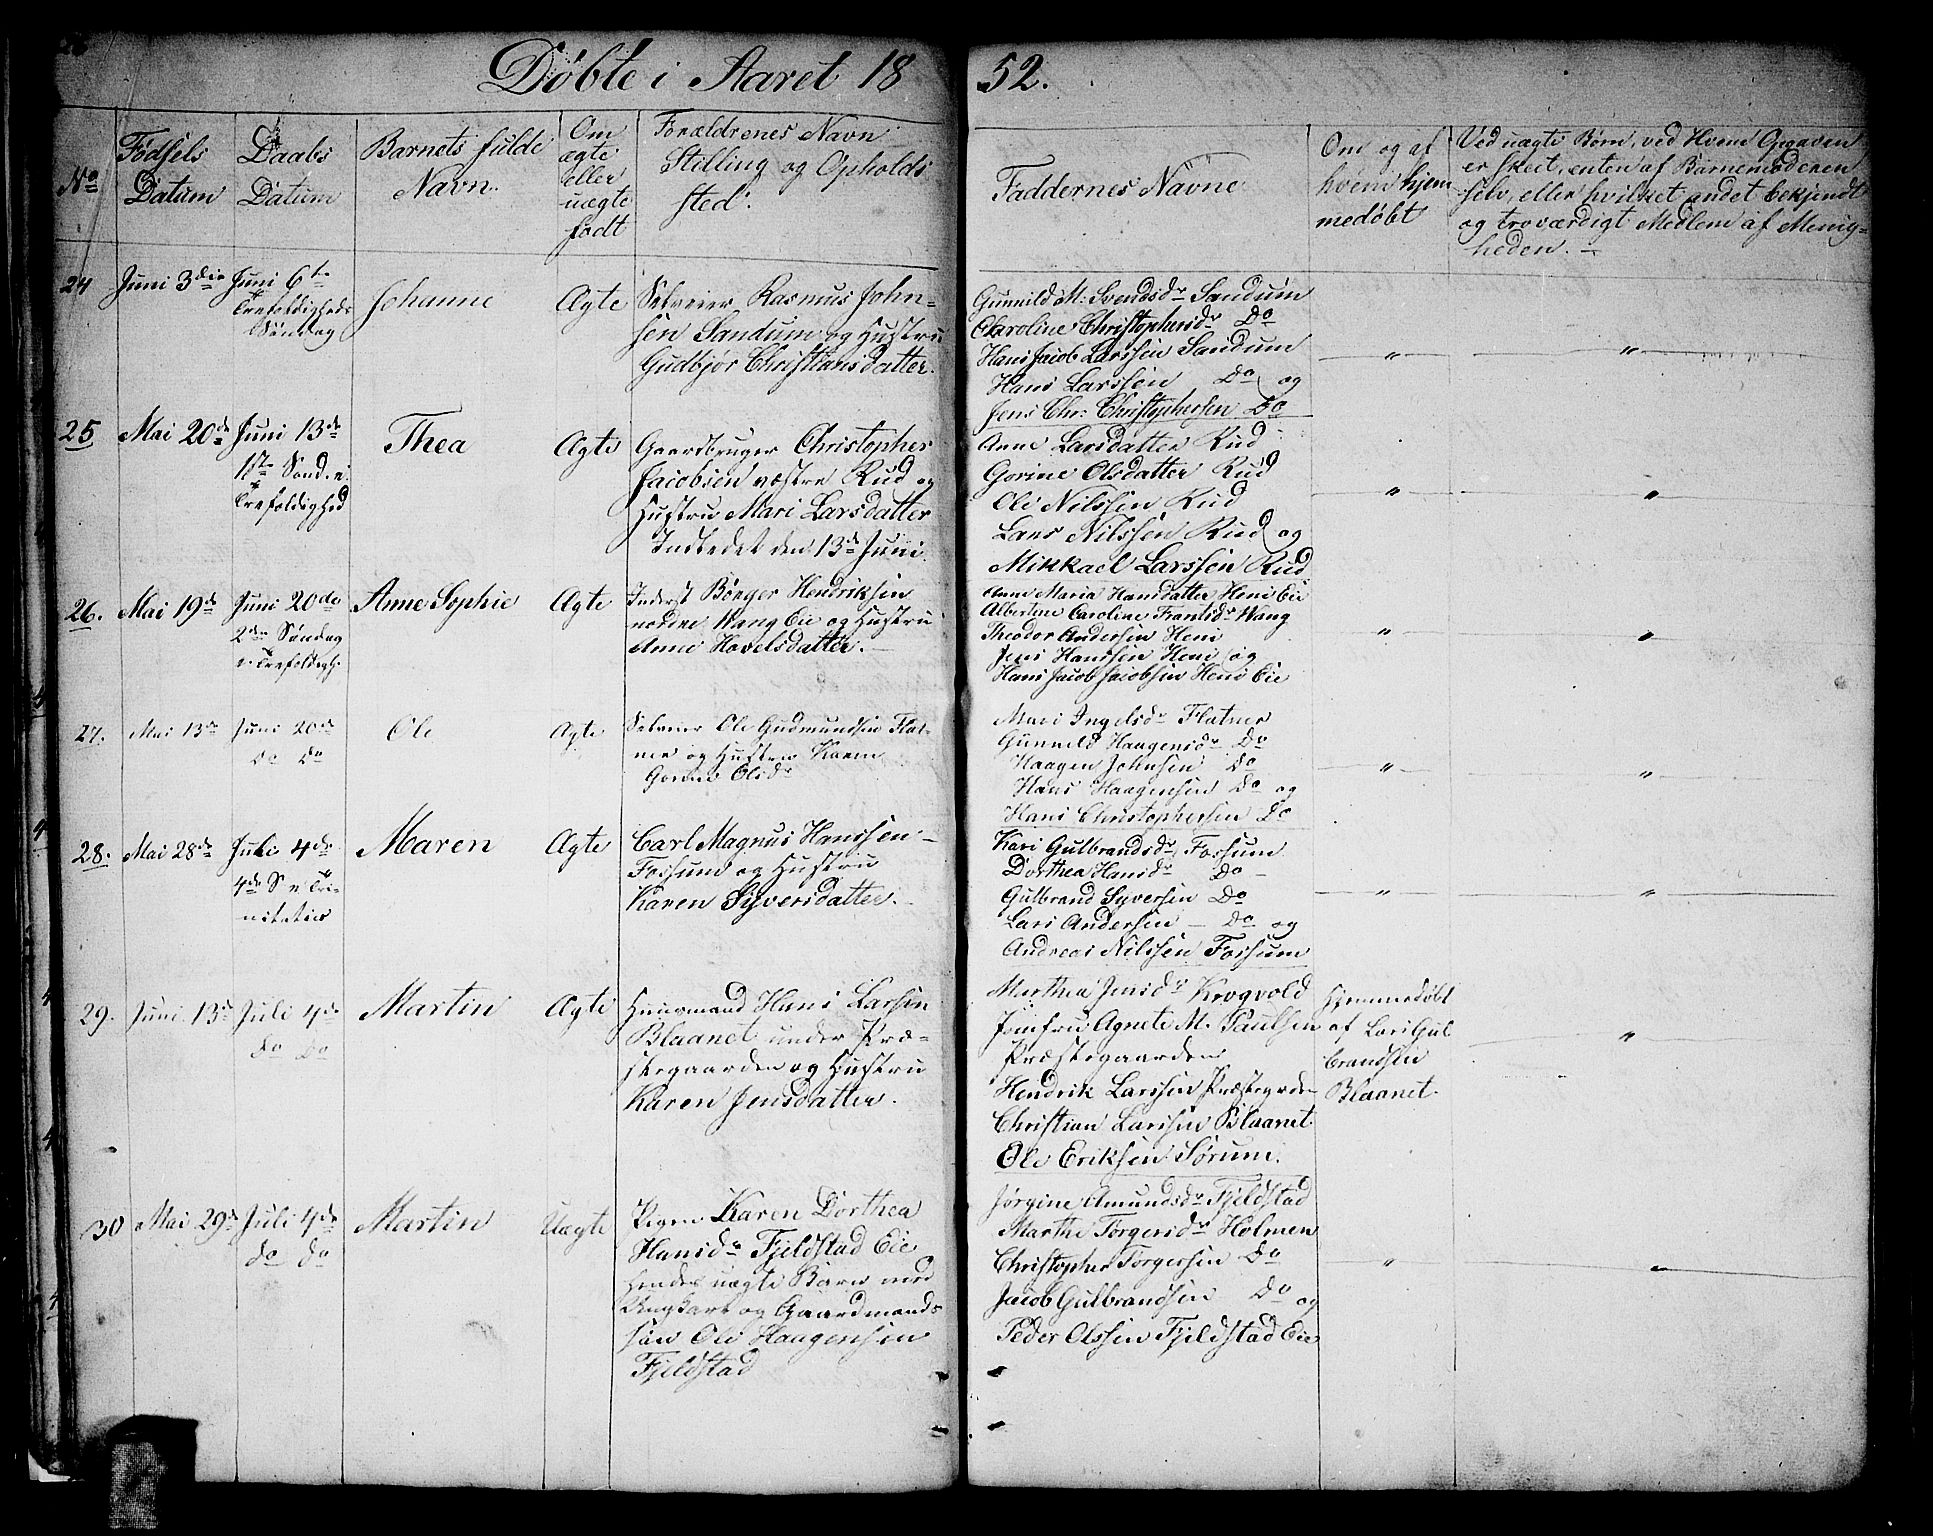 Døbte i Aaret 1852.
No
Fødsels Datum
Daabs Datum
Barnets fulde Navn.
Om ægte eller uægte født
Forældrenes Navn Stilling og Opholds sted.
Faddernes Navne
Om og af hvem hjemmedøbt
Ved uægte Børn, ved Hvem Opgaven
er skeet, enten af Barnemoderen
selv, eller hvilket andet bekjendt
og troværdigt Medlem af Menig-
heden. –
24
Juni 3die
Juni 6te
Trefoldigheds
Søndag
Johanne
Ægte
Selveier Rasmus John-
sen Sandum og Hustru
Gudbjør Christiansdatter.
Gunnild M: Svendsdr Sandum
Caroline Christophersdr Do
Hans Jacob Larssen Sandum
Hans Larssen Do og
Jens Chr: Christophersen Do
25
Mai 20de
Juni 13de
1ste Sønd. e.
Trefoldighed
Thea
Ægte
Gaardbruger Christopher
Jacobsen væstre Rud og
Hustru Mari Larsdatter
Indledet den 13de Juni
Anne Larsdatter Rud
Gorine Olsdatter Rud
Ole Nilssen Rud
Lars Nilssen Rud og
Mikkael Larssen Rud
26.
Mai 19de
Juni 20de
2den Søndag
e. Trefoldigh.
Anne Sophie
Ægte
Inderst Børger Hendriksen
nordre Wang Eie og Hustru
Anne Hovelsdatter. –
Anne Maria Hansdatter Heni Eie
Albertine Caroline Frantsdr Wang
Theodor Andersen Heni
Jens Hanssen Heni og
Hans Jacob Jacobsen Heni Eie
27.
Mai 13de
Juni 20de
do do
Ole
Ægte
Selveier Ole Gudmundsen Flat-
ner og Hustru Karen
Gorine Olsdr
Mari Ingelsdr Flatner
Gunneld Haagensdr Do
Haagen Johnsen Do
Hans Haagensen Do og
Hans Christophersen Do
28.
Mai 28de
Juli 4de
4de S e Tri-
nitatis
Maren
Ægte
Carl Magnus Hanssen –
Fossum og Hustru
Karen Syversdatter. –
Kari Gulbrandsdr Fossum
Dorthea Hansdr Do –
Gulbrand Syversen Do
Lars Andersen – Do og
Andreas Nilssen Fossum
29.
Juni 13de
Juli 4de
do do
Martin
Ægte
Huusmand Hans Larssen
Blaanet under Præ-
stegaarden og Hustru
Karen Jensdatter.
Marthea Jensdr Krogvold
Jomfru Agnete M. Paulsen
Præstegaarden
Hendrik Larssen Præstegrden
Christian Larssen Blaanet
Ole Eriksen Sørum.
Hjemmedøbt
af Lars Gul
brandsen
Blaanet.
30
Mai 29de
Juli 4de
do do
Martin
Uægte
Pigen Karen Dorthea
Hansdr Fjeldstad Eie
Hendes uægte Barn med
Ungkarl og Gaardmands
søn Ole Haagensen
Fjeldstad
Jørgine Amundsdr Fjeldstad
Marthe Torgersdr Holmen
Christopher Torgersen Do
Jacob Gulbrandsen Do og
Peder Olssen Fjeldstad Eie